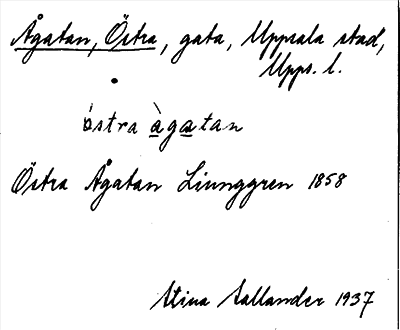 Ågatan, Östra, gata, Uppsala stad,
Upps. l.
östra àgatan
Östra Ågatan Ljunggren 1858
Stina Sallander 1937